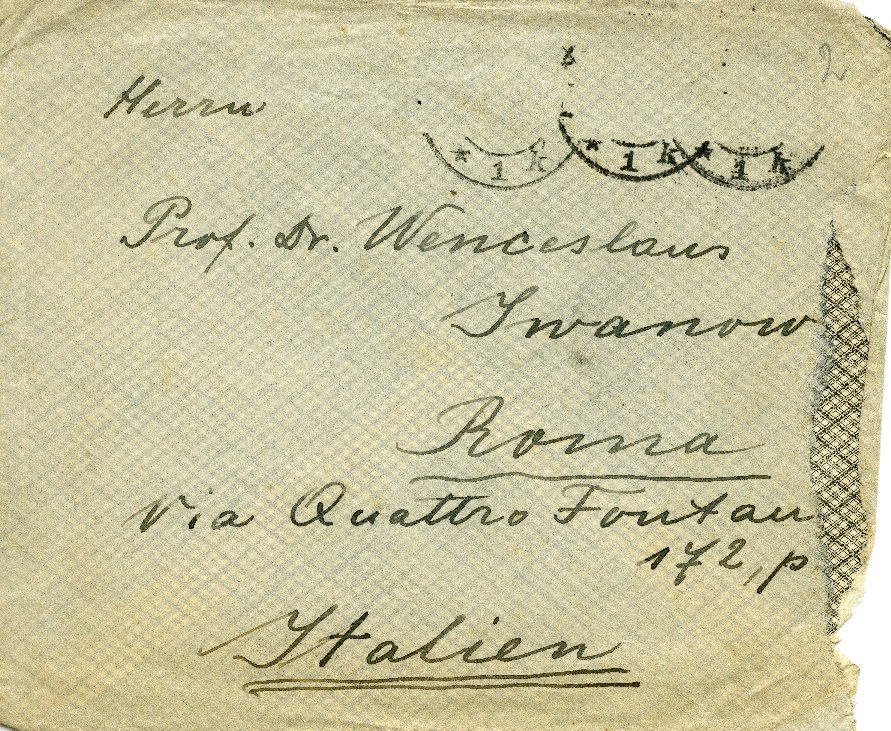 2
Herrn
* 1 k * 1 k * 1 k
Prof. Dr. Wenceslaus
Iwanow
Roma
Via Quattro Fontan
172, p
Italien